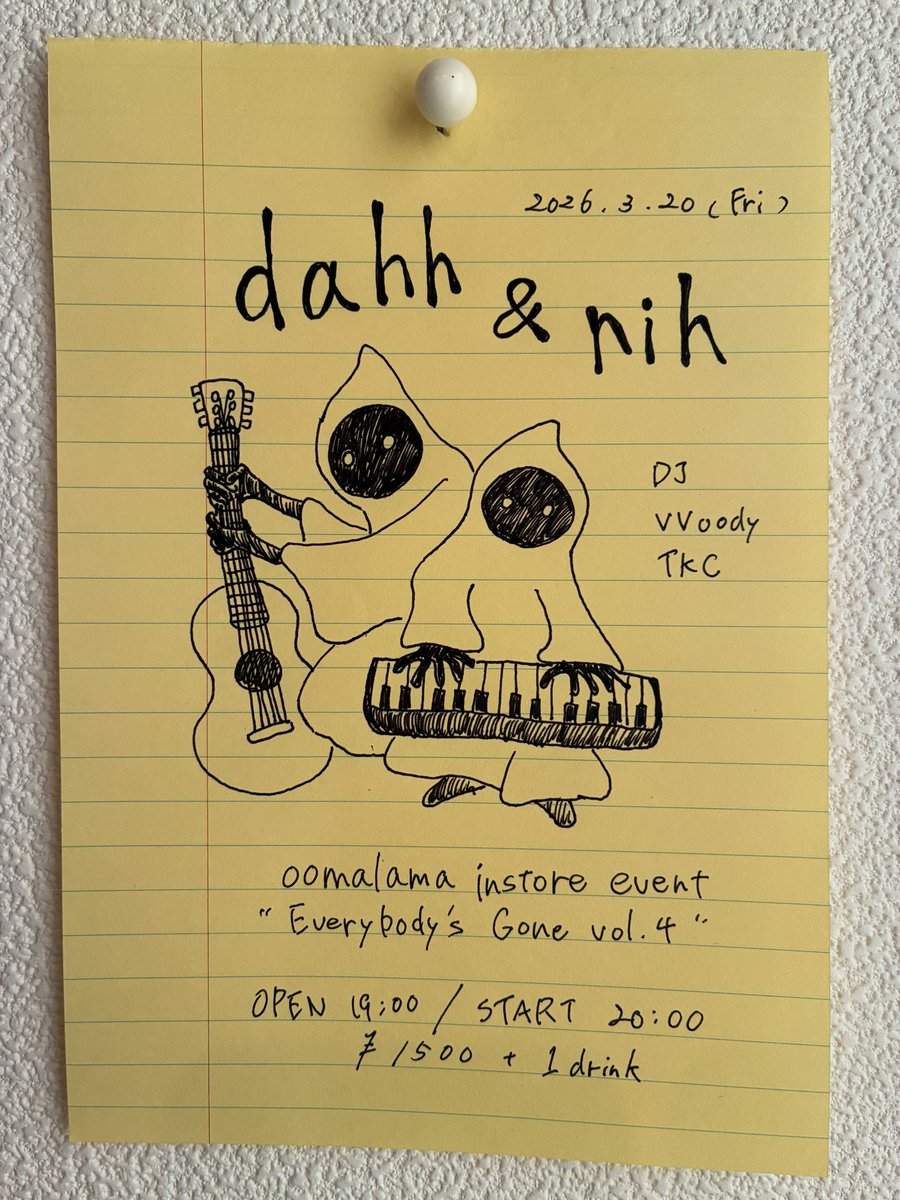 2026.3.20 (Fri)
dahh & nih
DJ
VVoody
TKC
oomalama instore event
"Everybody's Gone vol.4"
OPEN 19:00 / START 20:00
¥1500 + 1 drink